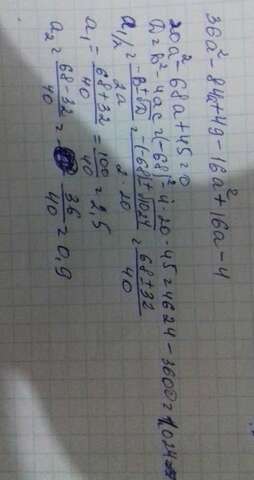 36a² - 84a + 49 - 16a² + 16a - 4
20a² - 68a + 45 = 0
D = b² - 4ac = (-68)² - 4·20·45 = 4624 - 3600 = 1024
a₁/₂ = -b±√D / 2a = -(-68)±√1024 / 2·20 = 68±32 / 40
a₁ = 68+32 / 40 = 100 / 40 = 2,5
a₂ = 68-32 / 40 = 36 / 40 = 0,9